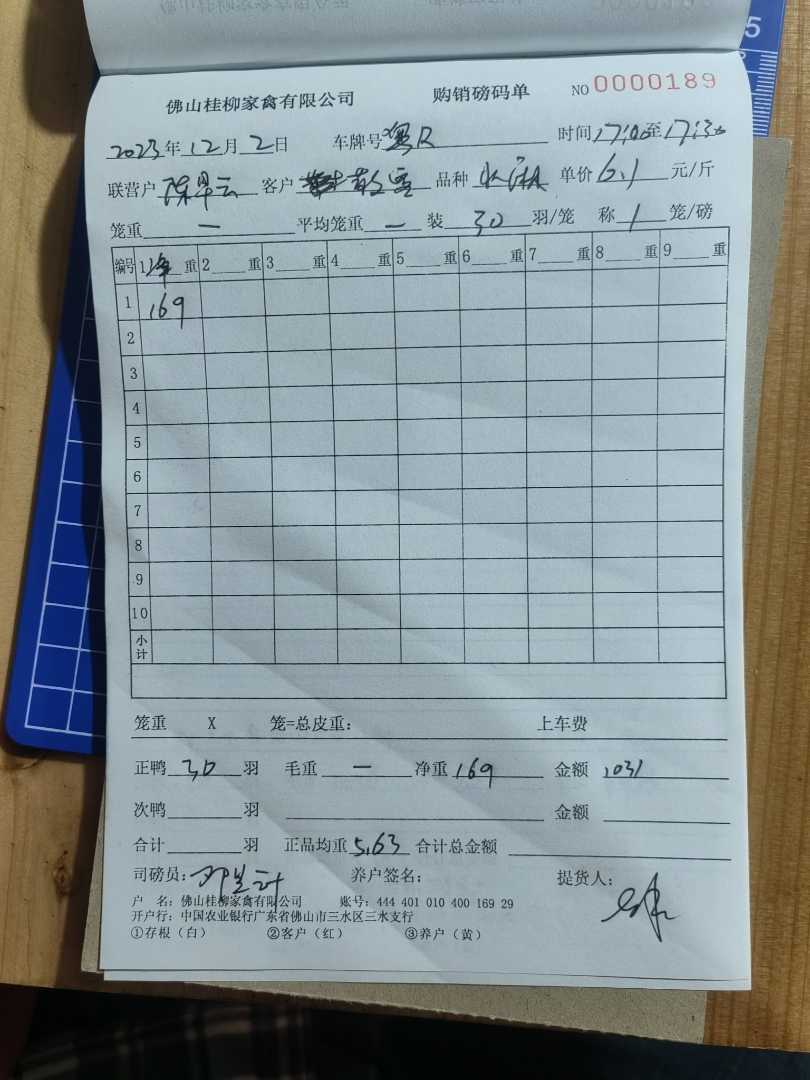 佛山桂柳家禽有限公司 购销磅码单 NO 0000189
2023年12月2日 车牌号 粤R 时间17:00至17:30
联营户 客户 散客 品种 单价6.1元/斤
笼重 一 平均笼重 一 装 30 羽/笼 称 1 笼/磅
编号 1 净 重 2 重 3 重 4 重 5 重 6 重 7 重 8 重 9 重
1 169
2
3
4
5
6
7
8
9
10
小计
笼重 X 笼=总皮重: 上车费
正鸭 30 羽 毛重 一 净重 169 金额 1031
次鸭 羽 金额
合计 羽 正品均重 5.63 合计总金额
司磅员: 养户签名: 提货人:
户 名: 佛山桂柳家禽有限公司 账号: 444 401 010 400 169 29
开户行: 中国农业银行广东省佛山市三水区三水支行
①存根（白） ②客户（红） ③养户（黄）